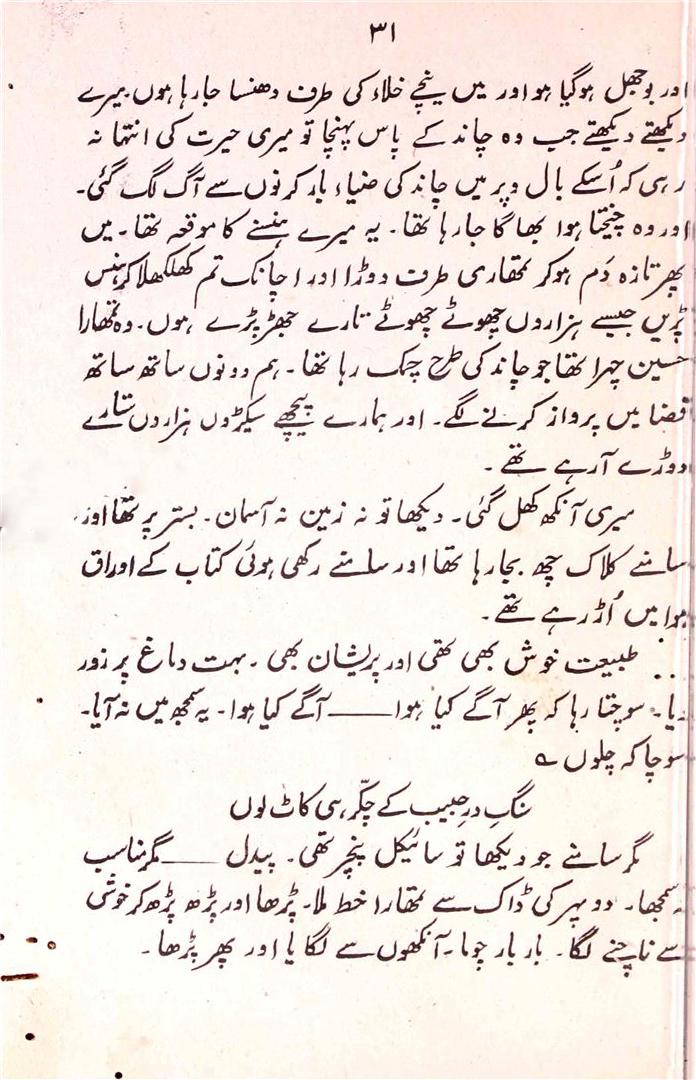 ۳۱
اور بوجھل ہوگیا ہو اور میں نیچے خلاء کی طرف دھنسا جارہا ہوں میرے
دیکھتے دیکھتے جب وہ چاند کے پاس پہنچا تو میری حیرت کی انتہا نہ
رہی کہ اُسکے بال و پر میں چاند کی ضیاء بار کرنوں سے آگ لگ گئی۔
اور وہ چیختا ہوا بھاگا جارہا تھا۔ یہ میرے ہنسنے کا موقعہ تھا۔ میں
پھر تازہ دَم ہوکر تمھاری طرف دوڑا اور اچانک تم کھلکھلا کر ہنس
پڑیں جیسے ہزاروں چھوٹے چھوٹے تارے جھڑ پڑے ہوں۔ وہ تمھارا
حسین چہرا تھا جو چاند کی طرح چمک رہا تھا۔ ہم دونوں ساتھ ساتھ
فضا میں پرواز کرنے لگے۔ اور ہمارے پیچھے سیکڑوں ہزاروں ستارے
دوڑے آرہے تھے۔
میری آنکھ کھل گئی۔ دیکھا تو نہ زمین نہ آسمان۔ بستر پر تھا اور
سامنے کلاک چھ بجا رہا تھا اور سامنے رکھی ہوئی کتاب کے اوراق
ہوا میں اُڑ رہے تھے۔
طبیعت خوش بھی تھی اور پریشان بھی۔ بہت دماغ پر زور
دیا۔ سوچتا رہا کہ پھر آگے کیا ہوا ــــــ آگے کیا ہوا۔ یہ سمجھ میں نہ آیا۔
سوچا کہ چلوں ؎
سنگِ درِ حبیب کے چکّر ہی کاٹ لوں
مگر سامنے جو دیکھا تو سائیکل پنچر تھی۔ پیدل ــــــ مگر مناسب
نہ سمجھا۔ دوپہر کی ڈاک سے تمھارا خط ملا۔ پڑھا اور پڑھ پڑھ کر خوشی
سے ناچنے لگا۔ بار بار چوما۔ آنکھوں سے لگایا اور پھر پڑھا۔